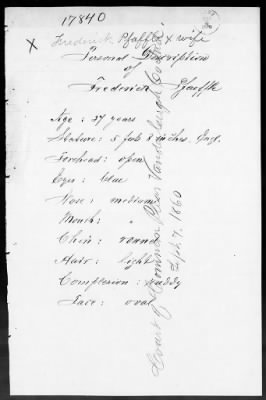 17840
X
Frederick Pfaffth & wife
Personal Description
of
Frederick Pfaffth
Age: 37 years
Stature: 5 feet 8 inches, Eng.
Forehead: open
Eyes: blue
Nose: medium
Mouth: "
Chin: round
Hair: light
Complexion: ruddy
Face: oval
Court of Common Pleas Vanderburgh Co
Sept. 7. 1860